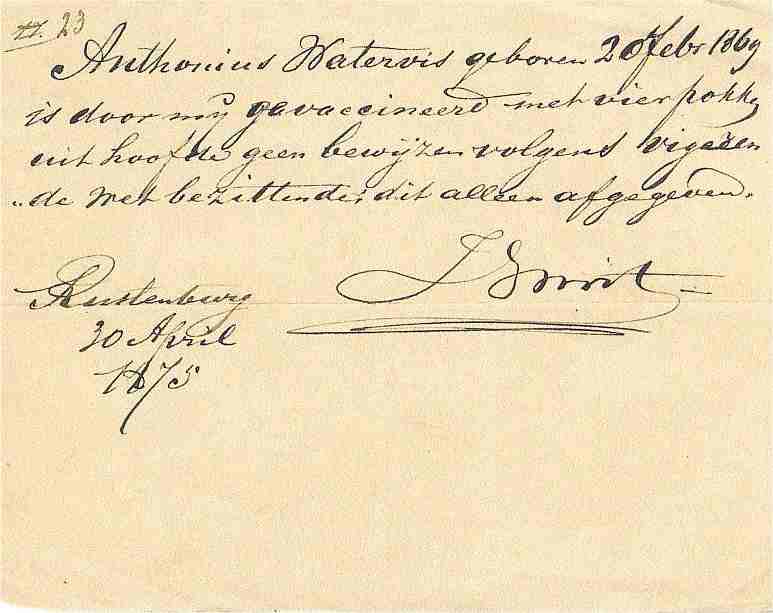 23
Anthonius Watervis geboren 20 Febr 1869
is door my gevaccineerd met vier pokke
uit hoofde geen bewijzen volgens vigeren
„de wet bezittende, dit alleen afgegeven.
J Smit
Rustenburg
30 April
1875